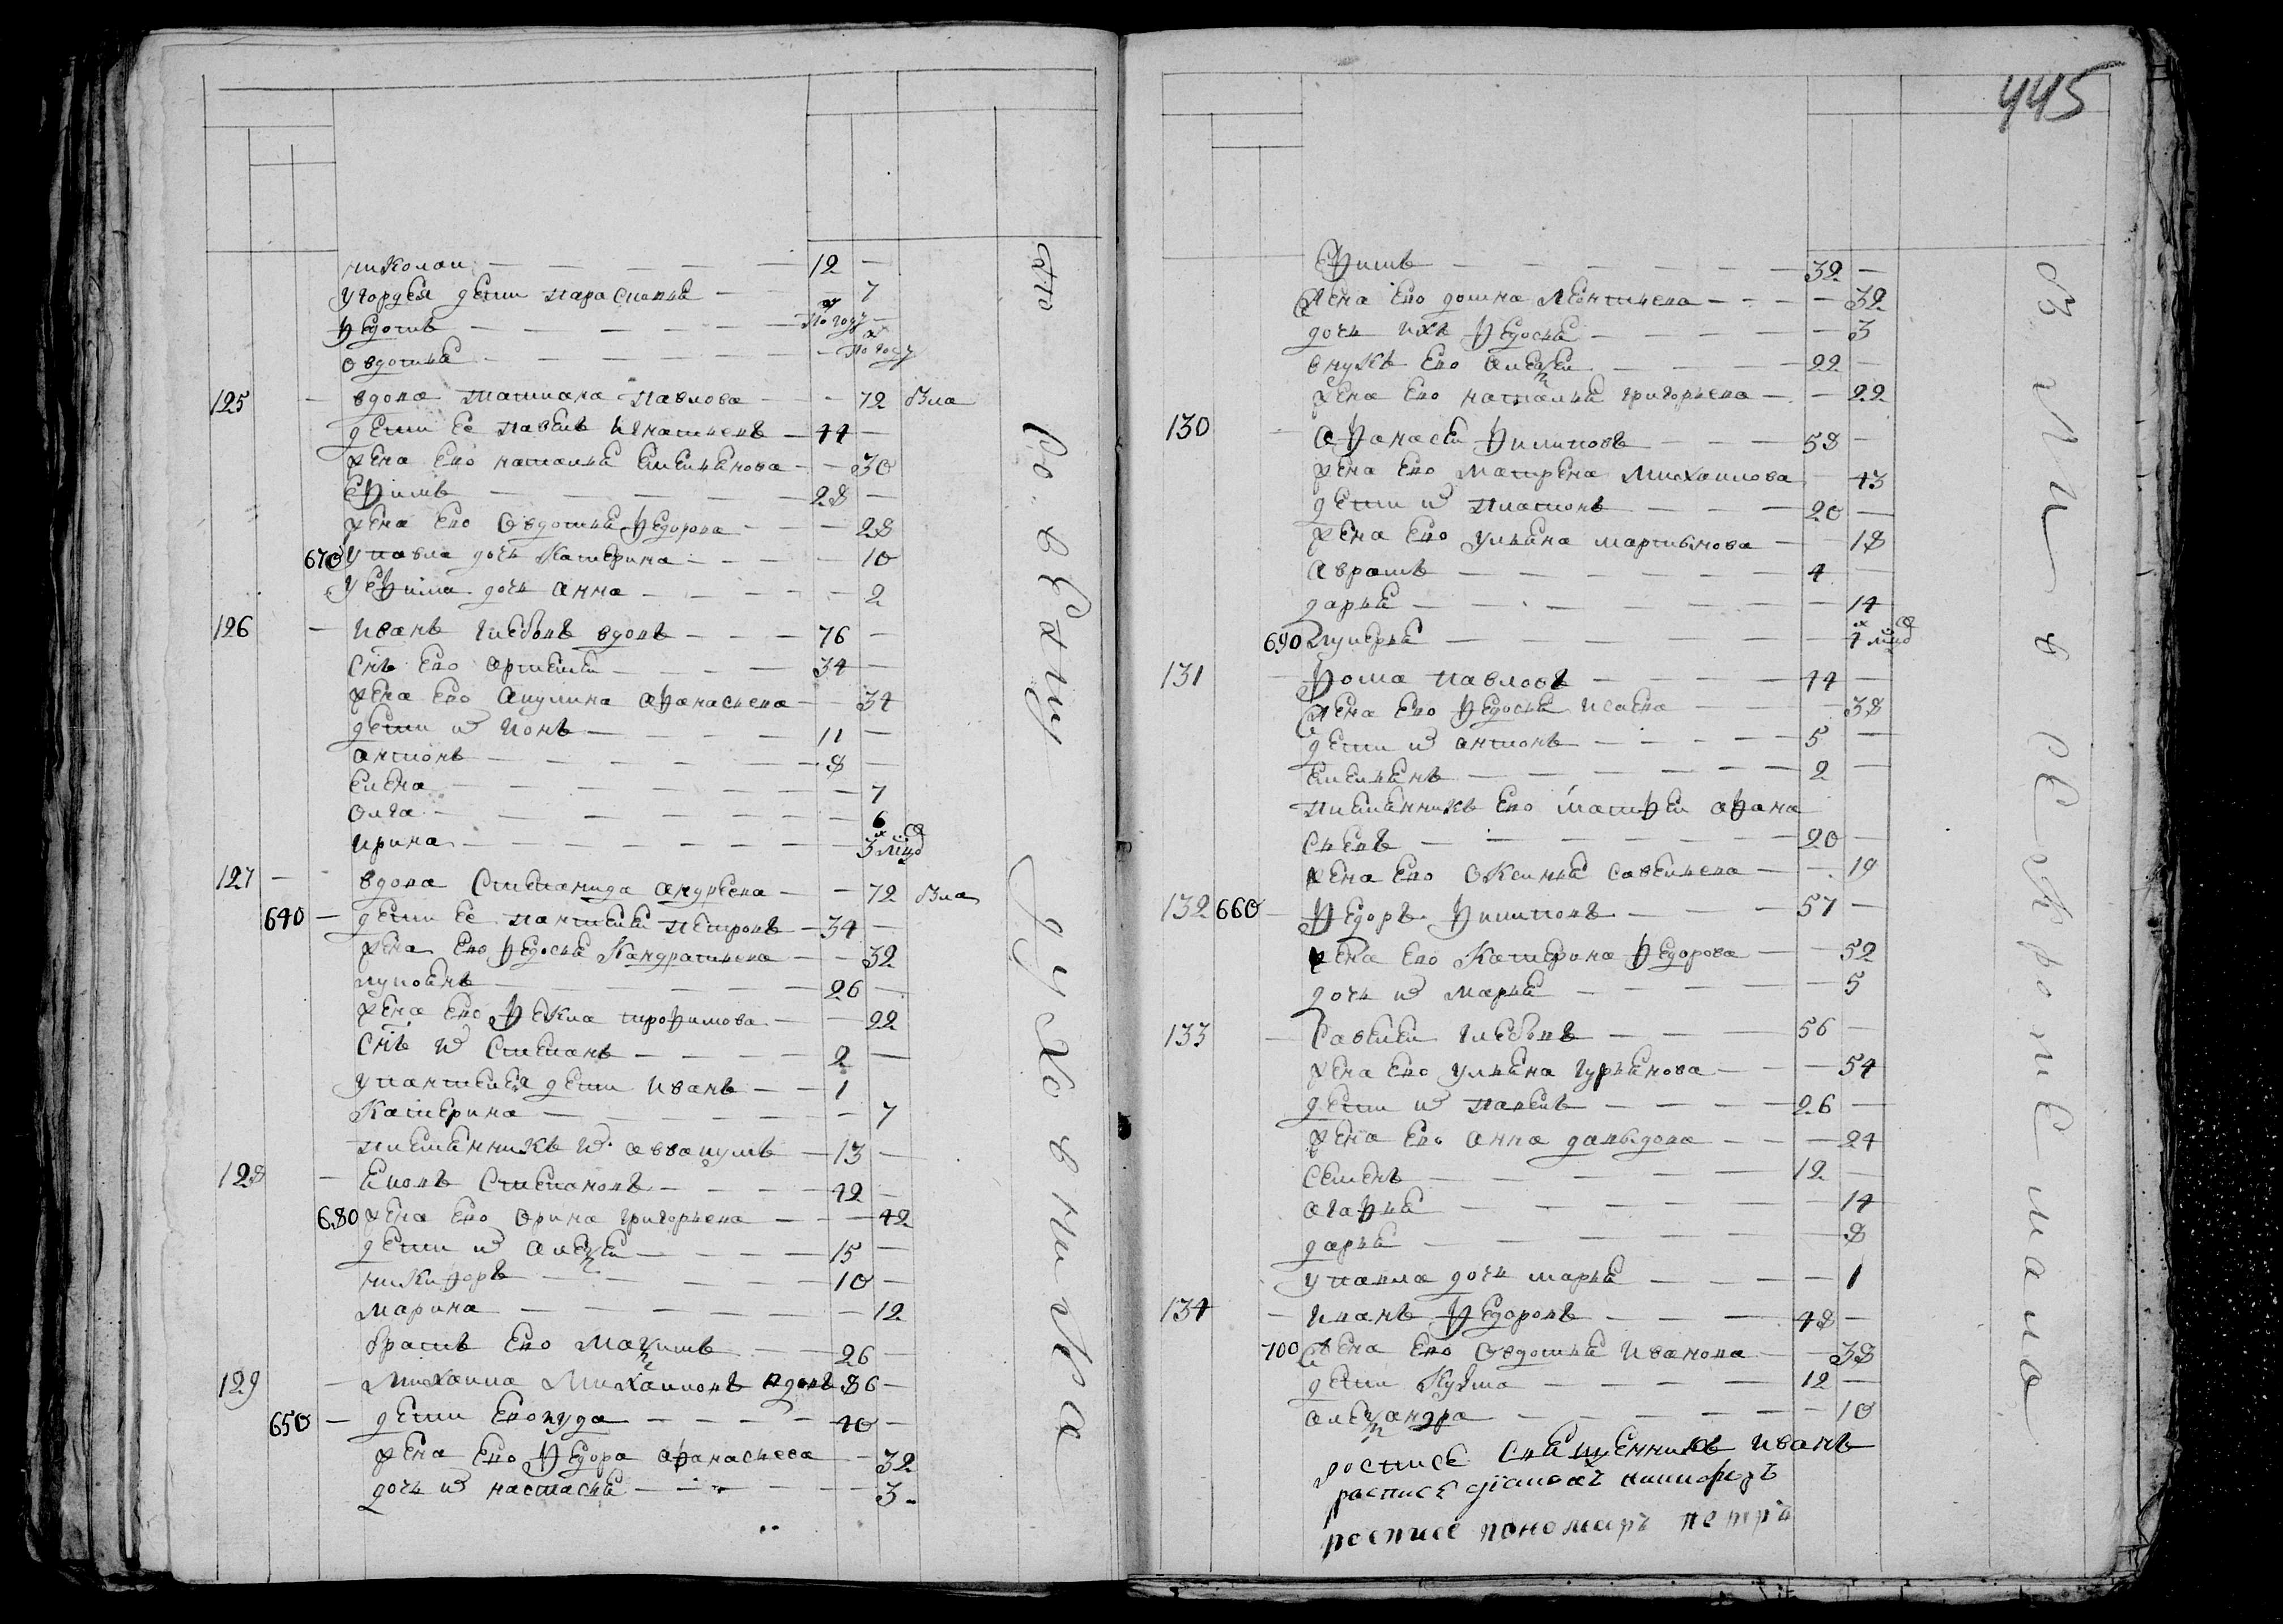 николаи 12
у гордея дети парасковья 7
федотъ по году
овдотья по году
125 вдова татиана павлова 72 Зла
дети ее павелъ игнатьевъ 44
жена ево наталья емельянова 30
ефимъ 28
жена ево овдотья федорова 28
670 у павла дочь катерина 10
у ефима дочь анна 2
126 иванъ глебовъ вдовъ 76
снъ ево артемеи 34
жена ево акулина афанасьева 34
дети иъ ионъ 11
антонъ 8
елена 7
олга 6
ирина 3 мцо
127 вдова степанида андреева 72 Зла
640 дети ее пантелеи петровъ 34
жена ево федосья кандратьева 32
лупоянъ 26
жена ево фекла трофимова 22
снъ иъ степанъ 2
у пантелея дети иванъ 1
катерина 7
племянникъ иъ аввакумъ 13
128 степановъ 42
680 жена ево орина григорьева 42
дети иъ алеѯеи 15
никифоръ 10
марина 12
братъ ево маѯимъ 26
129 михаила михаиловъ вдовъ 86
650 дети ево иуда 40
жена ево федора афанасьева 32
дочь иъ настасья 3
сто
Ро в Сему
духовнига
445
ефимъ 32
жена ево домна леонтьева 32
дочь ихъ федосья 3
внукъ ево алеѯеи 22
жена ево наталья григорьева 22
130 афанасеи филиповъ 58
жена ево матрена михаилова 43
дети иъ платонъ 20
жена ево ульяна мартынова 18
аврамъ 4
дарья 14
690 лукерья 4 мцо
131 фома павловъ 44
жена ево федосья исаева 38
дети иъ антонъ 5
емельянъ 2
племянникъ ево матфеи афана
сьевъ 20
жена ево оксинья савельева 19
132 660 федоръ филиповъ 57
жена ево катерина федорова 52
дочь иъ марья 5
133 савелеи глебовъ 56
жена ево ульяна гурьянова 54
дети иъ павелъ 26
жена ево анна давыдова 24
семенъ 12
агафья 14
дарья 8
у павла дочь марья 1
134 иванъ федоровъ 48
700 жена ево овдотья иванова 38
дети кузма 12
алеѯандра 10
росписе священникъ иванъ
расписе діаконъ никифоръ
росписе пономаръ петръ